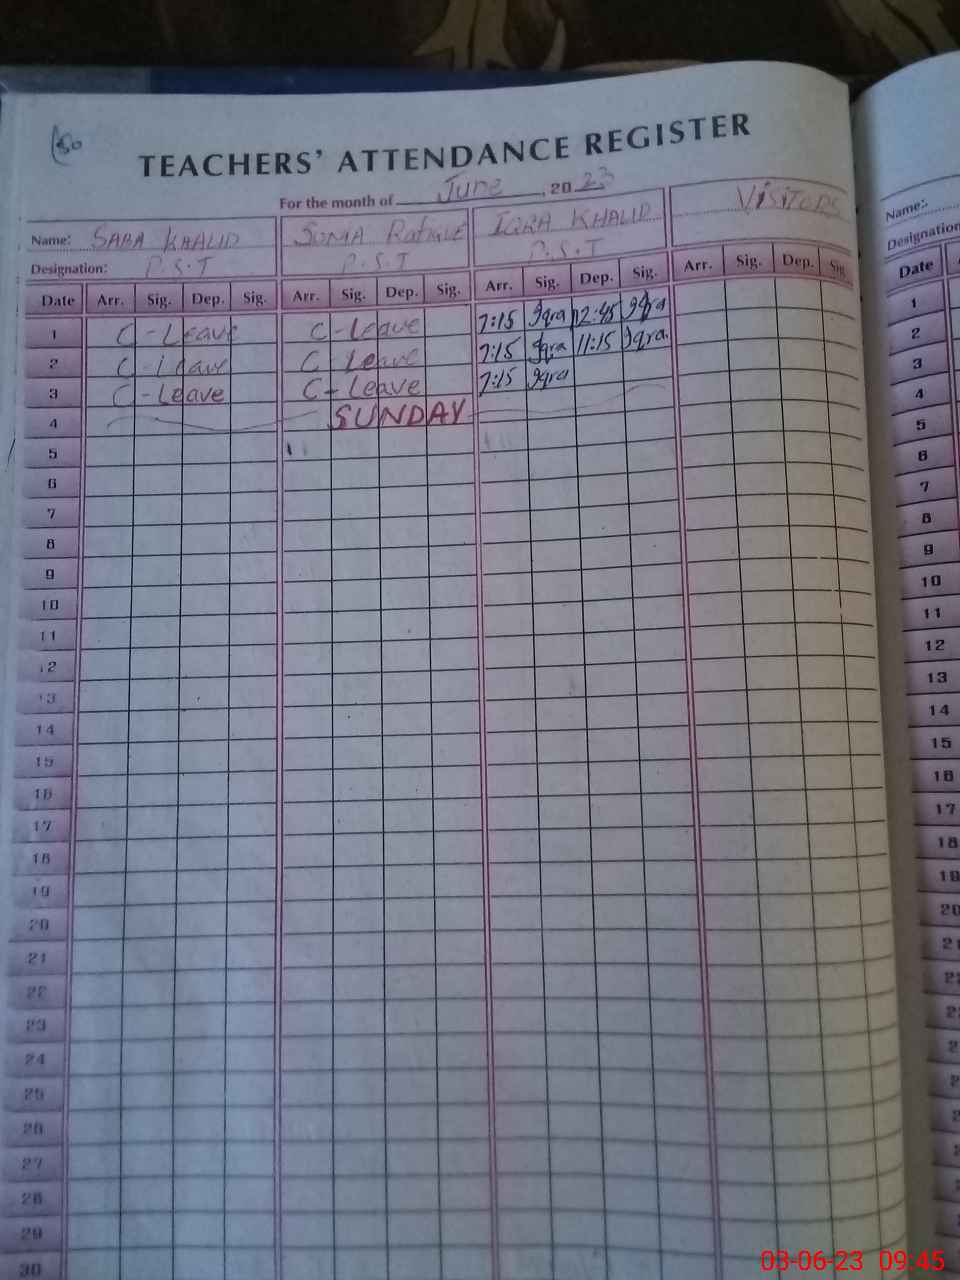 TEACHERS' ATTENDANCE REGISTER
For the month of June , 20 23
Name: SABA KHALID SUMA IQRA KHALID VISITORS Name:-
Designation: P.S.T P.S.T P.S.T Designation
Date Arr. Sig. Dep. Sig. Arr. Sig. Dep. Sig. Arr. Sig. Dep. Sig. Arr. Sig. Dep. Sig Date
1 C-Leave C-Leave 7:15 Iqra 12:45 Iqra 1
2 C-Leave C-Leave 7:15 Iqra 11:15 Iqra 2
3 C-Leave C-Leave 7:15 Iqra 3
4 SUNDAY 4
5 5
6 6
7 7
8 8
9 9
10 10
11 11
12 12
13 13
14 14
15 15
16 16
17 17
18 18
19 19
20 20
21 21
22
23
24
25
26
27
28
29
30
03-06-23 09:45